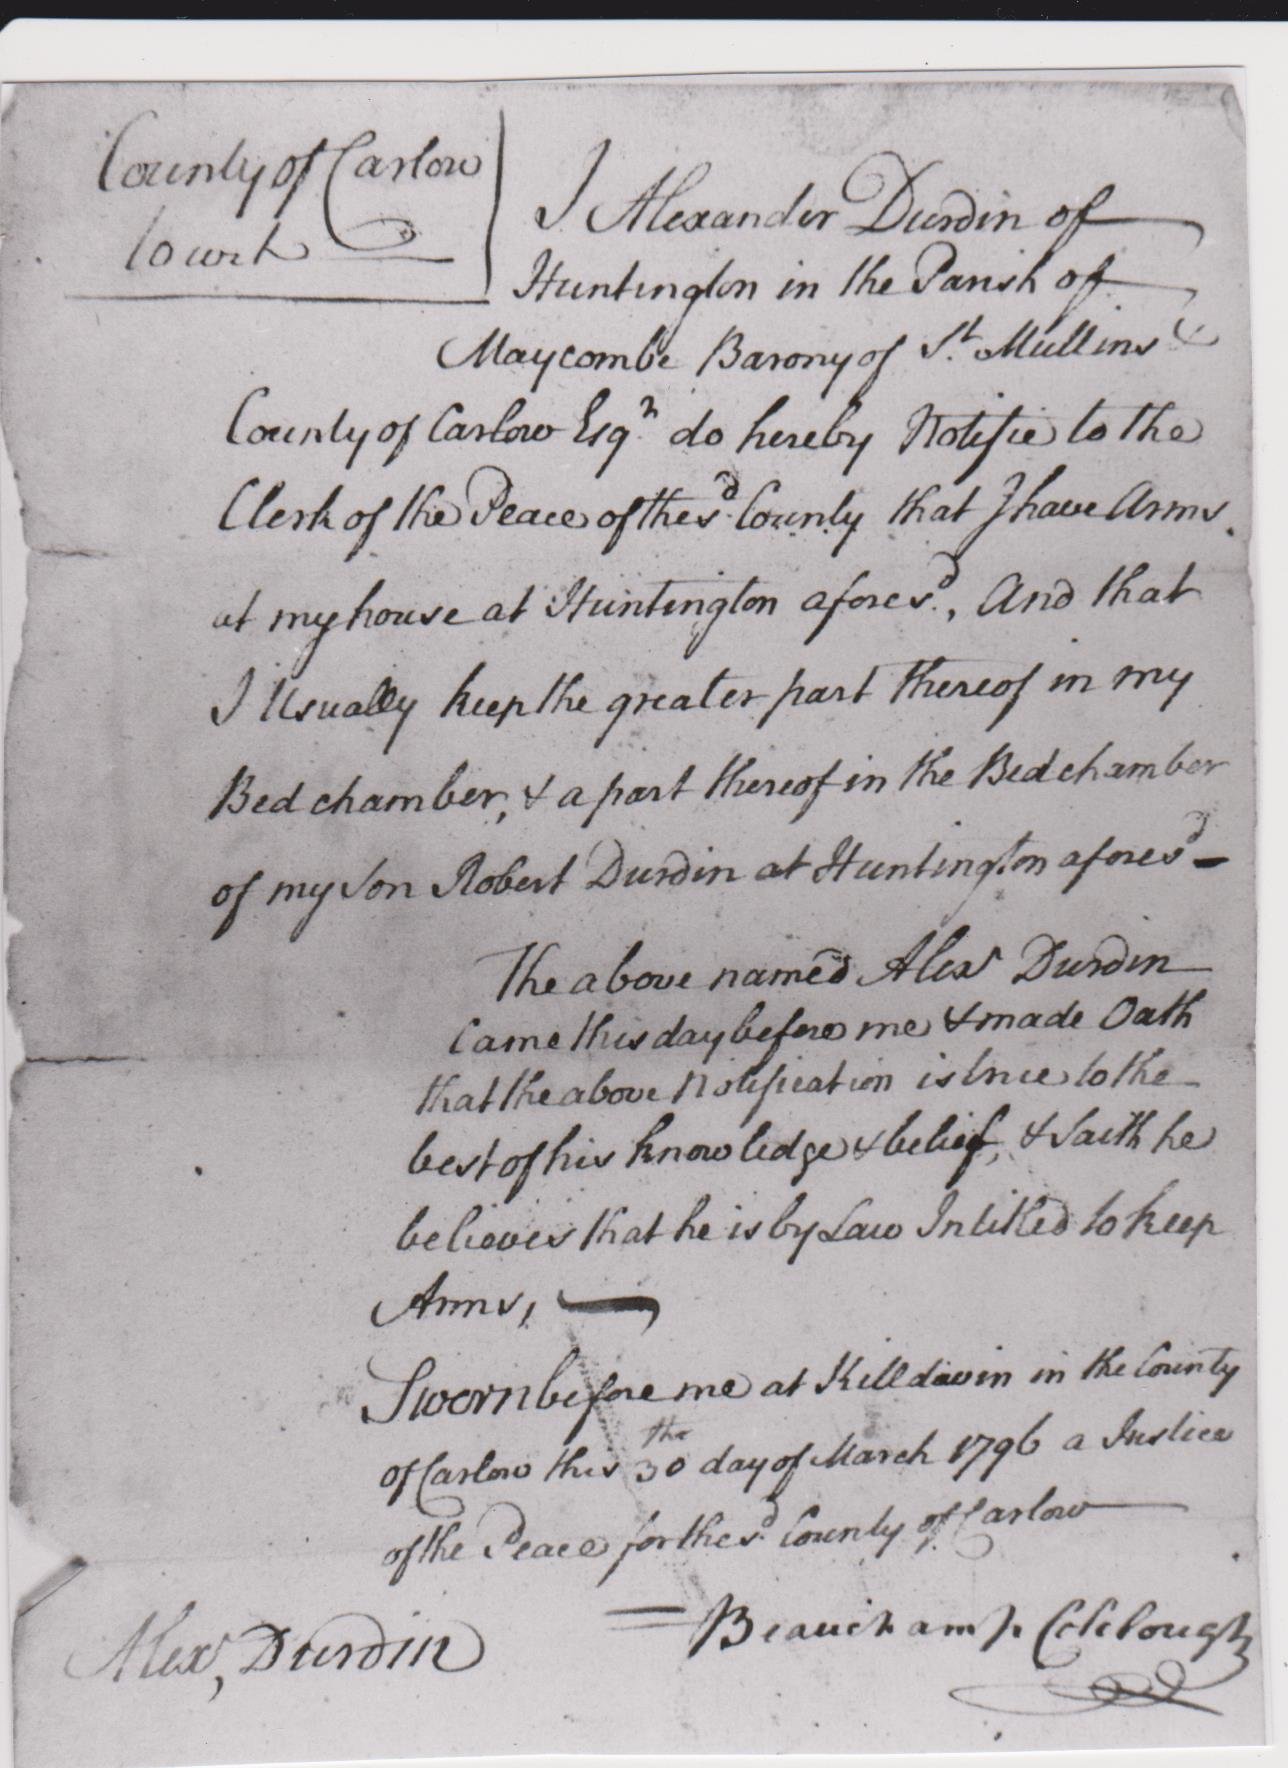 County of Carlow
to wit
I Alexander Durdin of
Huntington in the Parish of
Maycombe Barony of St. Mullins &
County of Carlow Esqr. do hereby Notifie to the
Clerk of the Peace of the sd. County that I have Arms
at my house at Huntington aforesd., And that
I Usually keep the greater part thereof in my
Bedchamber, & a part thereof in the Bedchamber
of my Son Robert Durdin at Huntington aforesd –
The above named Alexr Durdin
Came this day before me & made Oath
that the above Notification is true to the
best of his knowledge & belief, & Saith he
believes that he is by Law Intitled to keep
Arms, —
Sworn before me at Killdavin in the County
of Carlow this 30 the day of March 1796 a Justice
of the Peace for the sd. County of Carlow
Beauchamp Colclough
Alexr, Durdin